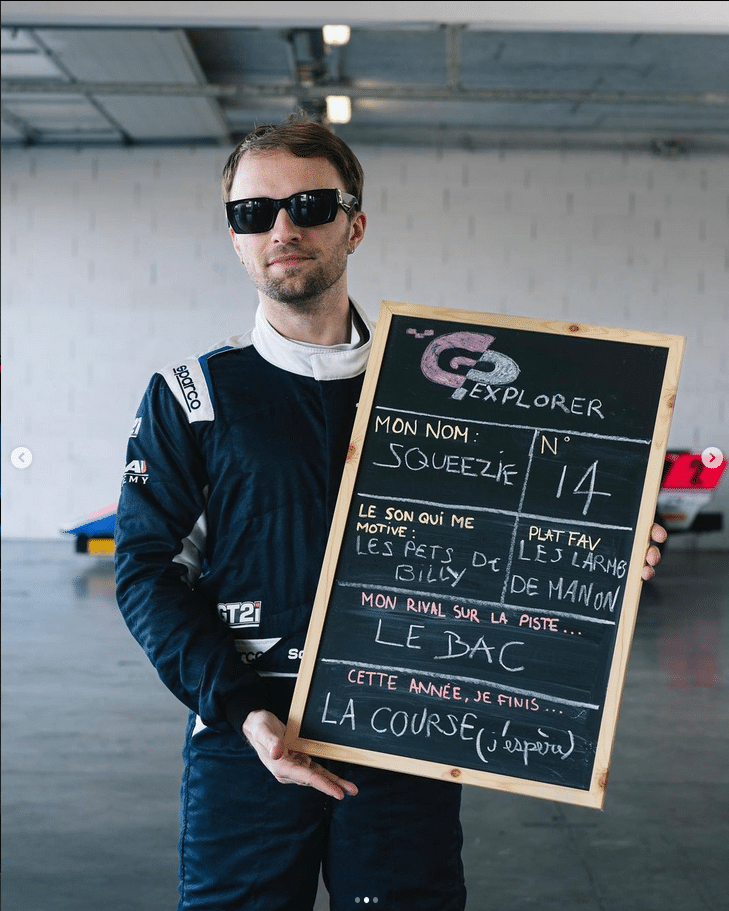 GP
EXPLORER
MON NOM:
SQUEEZIE
N°
14
LE SON QUI ME
MOTIVE:
LES PETS DE
BILLY
PLAT FAV
LES LARMES
DE MANON
MON RIVAL SUR LA PISTE...
LE BAC
CETTE ANNÉE, JE FINIS...
LA COURSE (j'espère)
sparco
EMY
GT2i
2